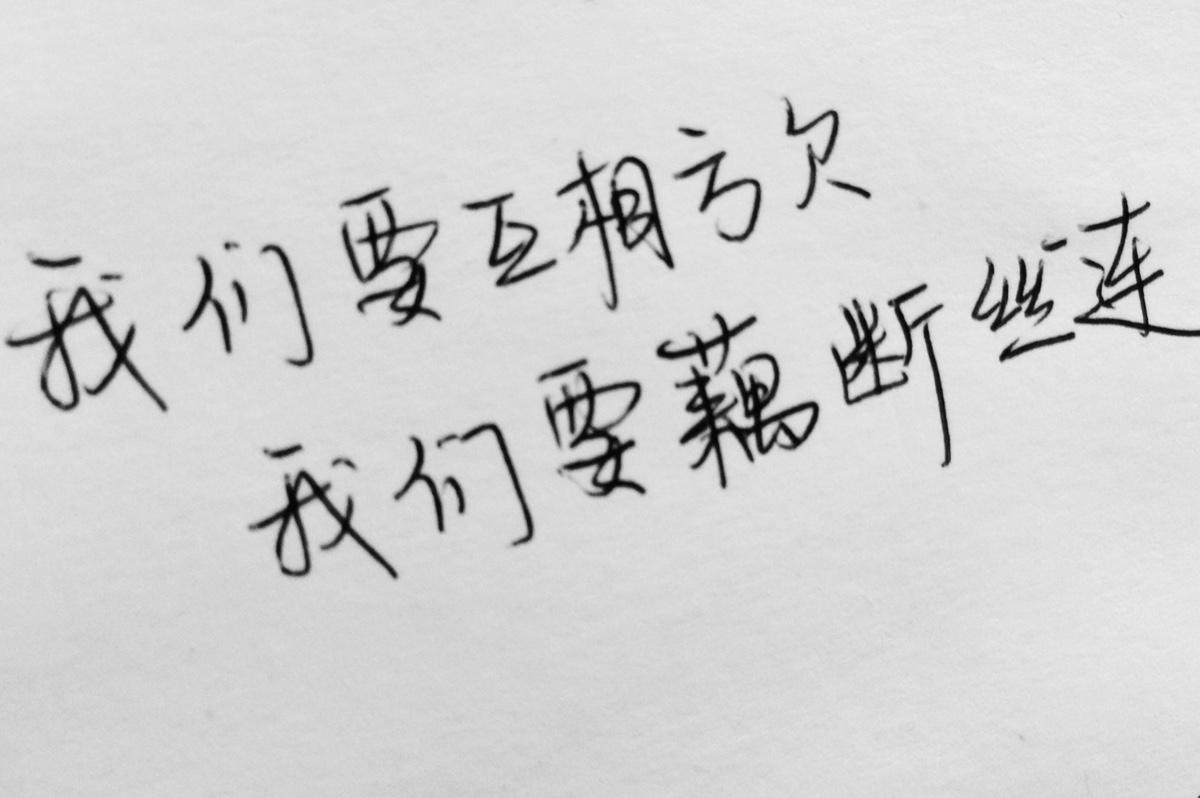 我们要互相亏欠
我们要藕断丝连